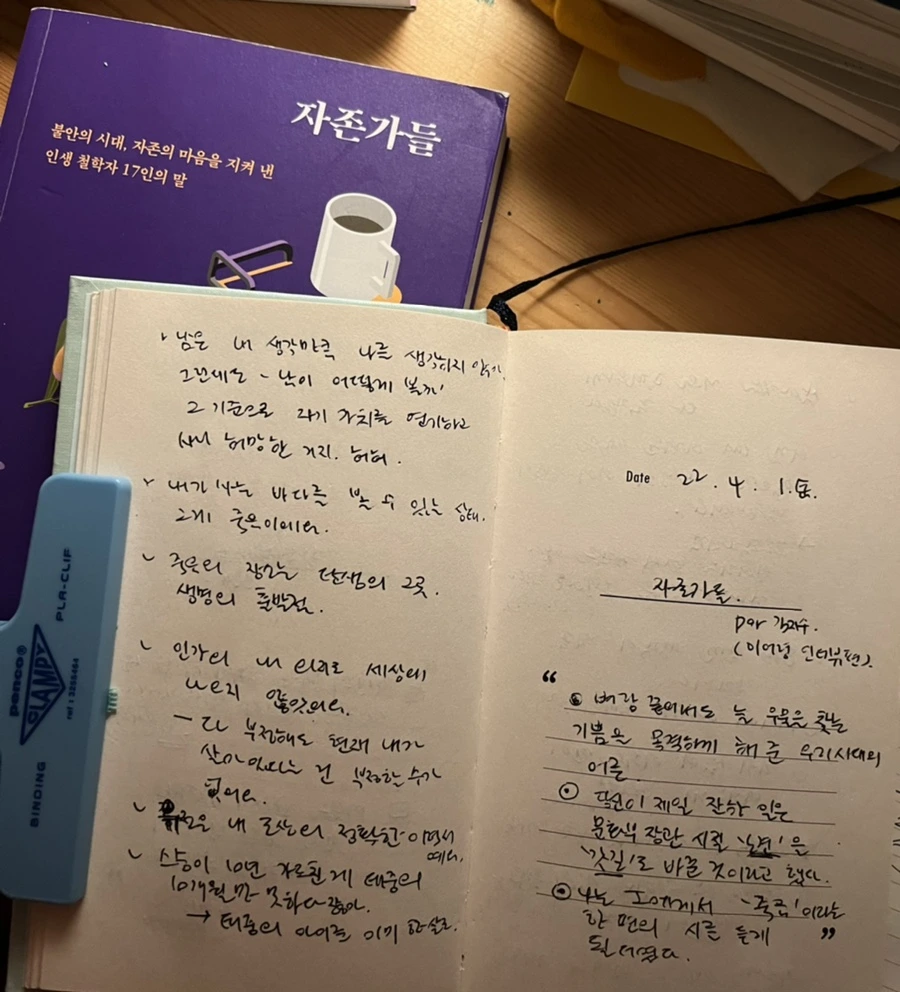 자존가들
불안의 시대, 자존의 마음을 지켜 낸
인생 철학자 17인의 말
남은 내 생각만큼 나를 생각하지 않
그런데도 - 남이 어떻게 볼까'
그 기준으로 자기 가치를 연기하고
사니 허망한 거지. 허허.
내가 나는 바다를 볼 수 있는 상태.
그게 죽음이에요.
죽음의 장소는 탄생의 그곳.
생명의 출발점.
인간의 내 의지로 세상에
나오지 않았어요.
- 다 부정해도 현재 내가
살아있다는 건 부정할 수가
없어요.
내 모습의 정확한
스승이 10년 가르친 게 태중의
10개월만 못하다
→ 태중의 아이를 이미 한 살로.
penco®
CLAMPY
ref : 3255464
PLA-CLIF
BINDING
Date 22. 4. 1.金.
자존가들.
par 김지수.
(이어령 인터뷰편).
"
벼랑 끝에서도 늘 우물은 찾는
기쁨을 목격하게 해 준 우리시대의
어른.
당신이 제일 잘한 일은
문화부 장관 시절 '노견'을
'갓길'로 바꾼 것이라고 했다.
나는 그에게서 '죽음'이라는
한 편의 시를 듣게
되 더였다. "